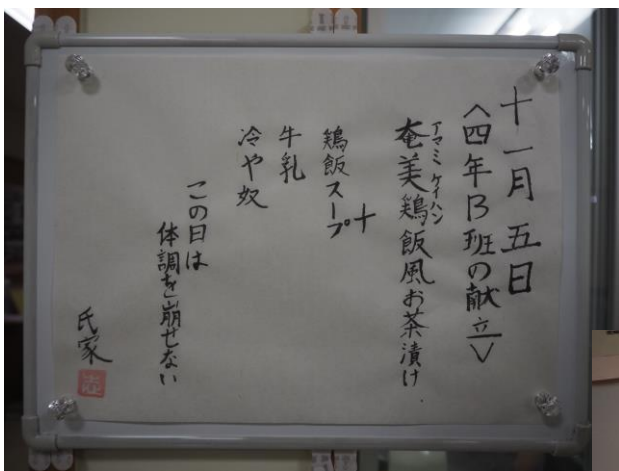 十一月五日
〈四年B班の献立〉
アマミケイハン
奄美鶏飯風お茶漬け
＋
鶏飯スープ
牛乳
冷や奴
この日は
体調を崩せない
氏家